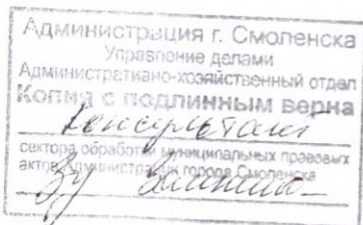 Администрация г. Смоленска
Управление делами
Административно-хозяйственный отдел
Копия с подлинным верна
Консультант
сектора обработки муниципальных правовых
актов Администрации города Смоленска